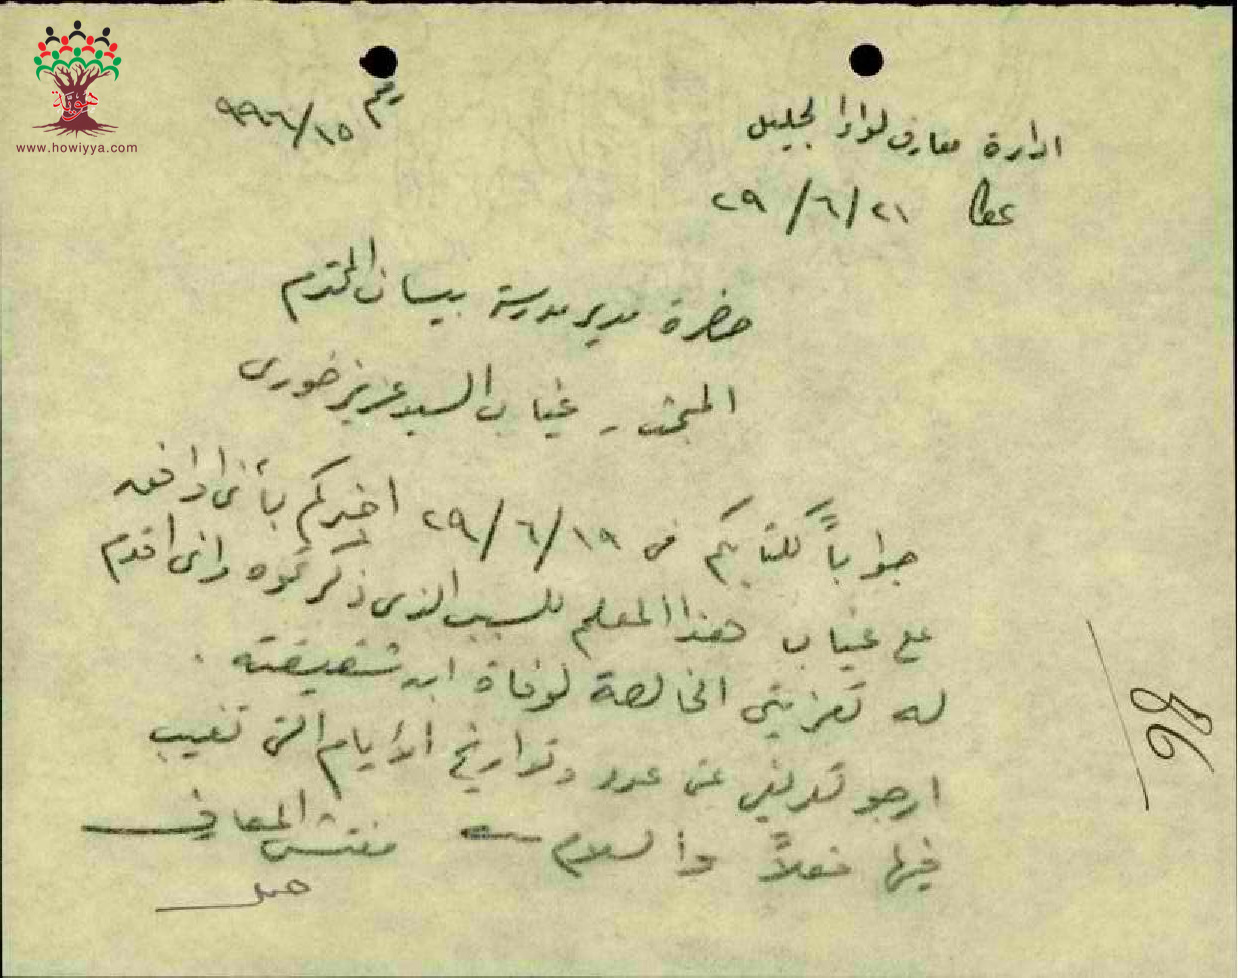 هوية
www.howiyya.com
رقم ٩٩٦/١٥
ادارة معارف لواء الجليل
عكا ٢١/٦/٢٩
حضرة مدير مدرسة بيسان المحترم
المبحث - غياب السيد عزيز خوري
جواباً لكتابكم في ١٩/٦/٢٩ اخبركم بأنى اوافق
على غياب هذا المعلم للسبب الذى ذكرتموه وانى اقدم
له تعزيتي الخالصة لوفاة ابن شقيقته .
ارجو تعريفي عن عدد وتواريخ الايام التى تغيب
فيها فعلاً والسلام
مفتش المعارف
86